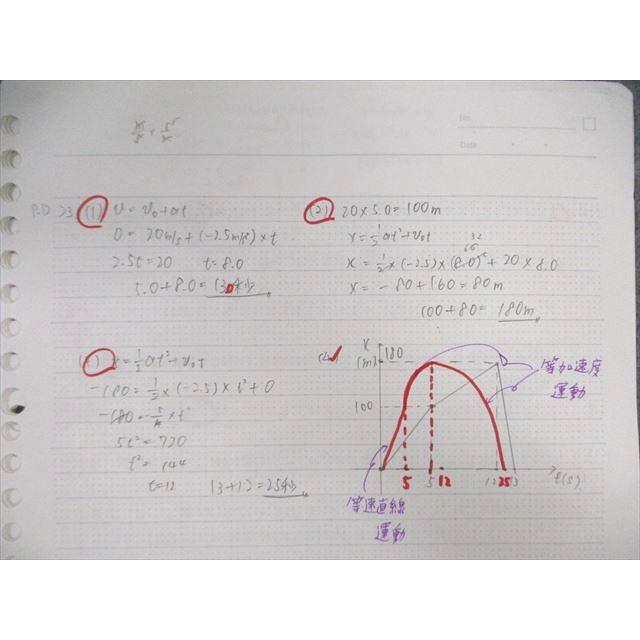 No.
Date
P.D 23 (1) v = v₀+at
0 = 20m/s+(-2.5m/s²)×t
2.5t=20 t=8.0
5.0+8.0=13秒
(2) 20×5.0=100m
x=½at²+v₀t
x=½×(-2.5)×(8.0)²+20×8.0
x=-80+160=80m
100+80=180m
x=½at²+v₀t
-180=½×(-2.5)×t²+0
5t²=720
t²=144
t=12 13+12=25秒
x
(m)
180
100
5 5 12 25
t(s)
等加速度
運動
等速直線
運動